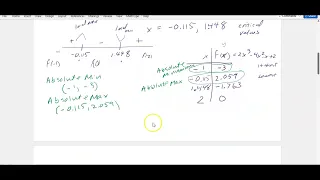 local max
local min
x = -0.115, 1.448 critical values
+ - +
-0.115 1.448
f(-1) f(1) f(2)
Absolute Min
(-1, -3)
Absolute Max
(-0.115, 2.059)
x f(x) = 2x³-4x²-x+2
Absolute minimum -1 -3
Absolute Max -0.115 2.059
1.448 -1.763
2 0